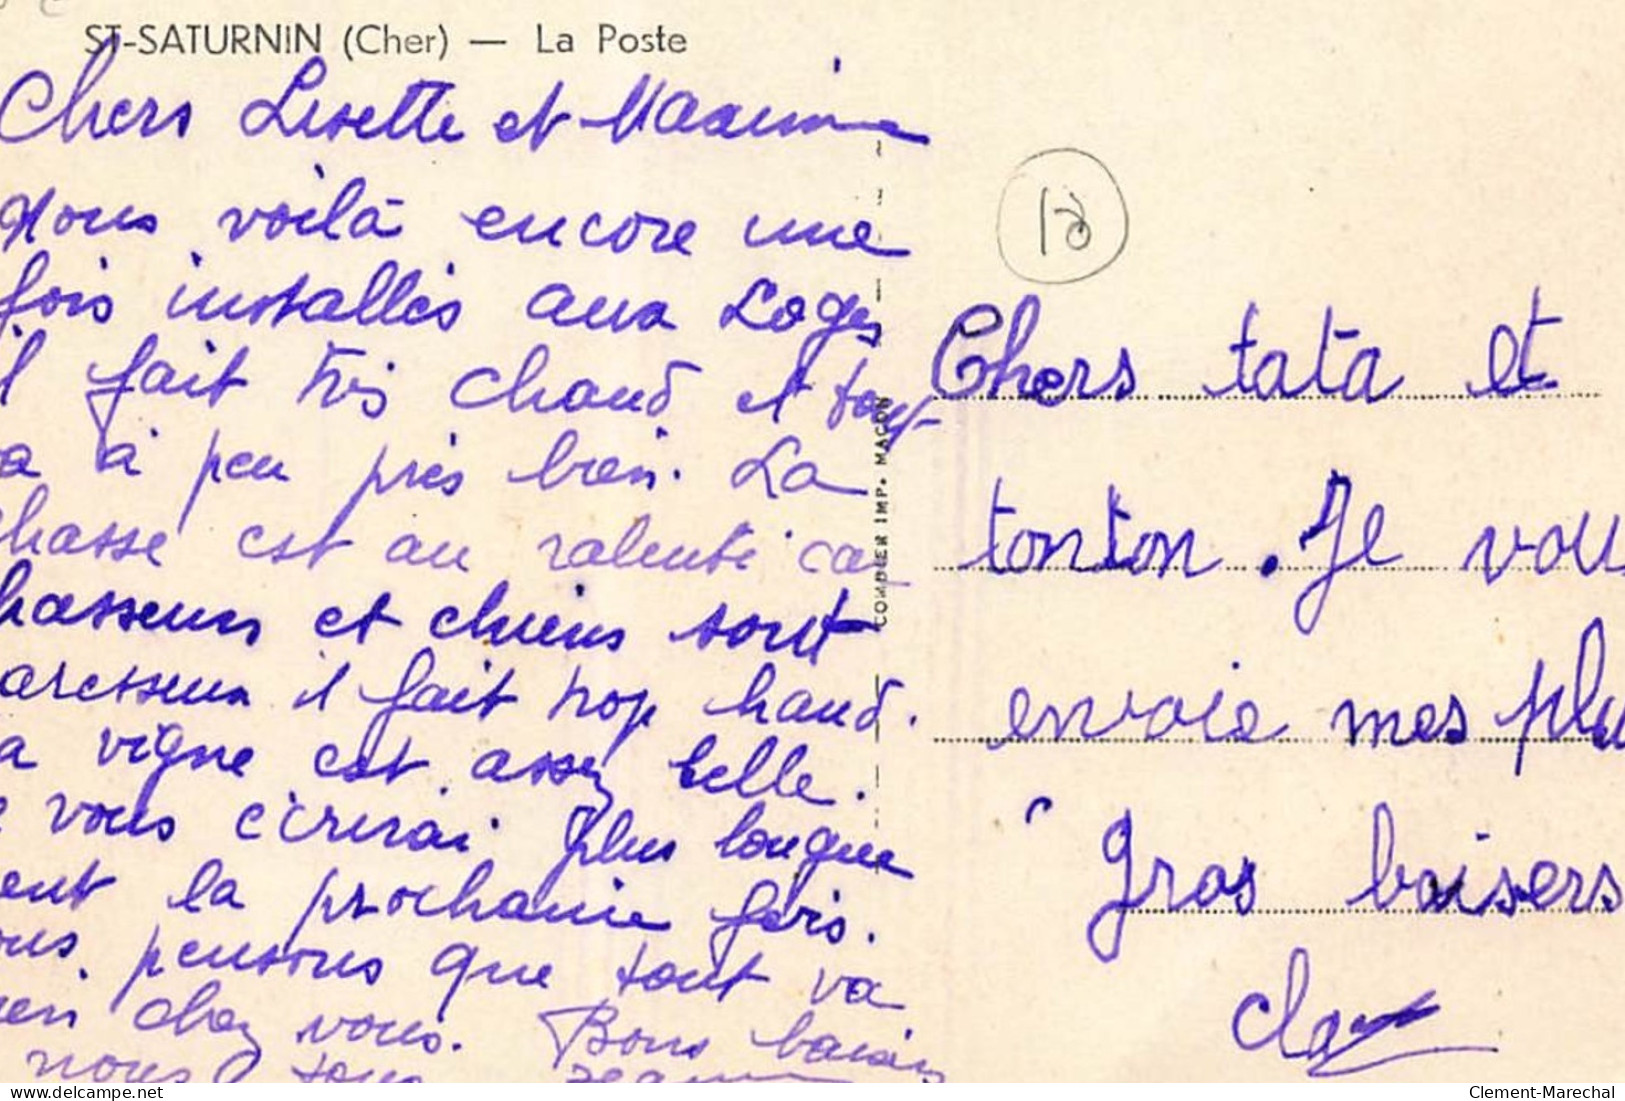 ST-SATURNIN (Cher) — La Poste
Chers Lisette et Maxime
Nous voilà encore une
fois installés aux Loges
il fait très chaud et tout
va à peu près bien. La
chasse est au ralenti car
chasseurs et chiens sont
paresseux il fait trop chaud.
La vigne est assez belle.
Je vous écrirai plus longue
ment la prochaine fois.
Nous pensons que tout va
bien chez vous. Bons baisers
nous tous
COMBIER IMP. MACON
10
Chers tata et
tonton. Je vous
envoie mes plus
Gros baisers
delcampe.net
Clement-Marechal